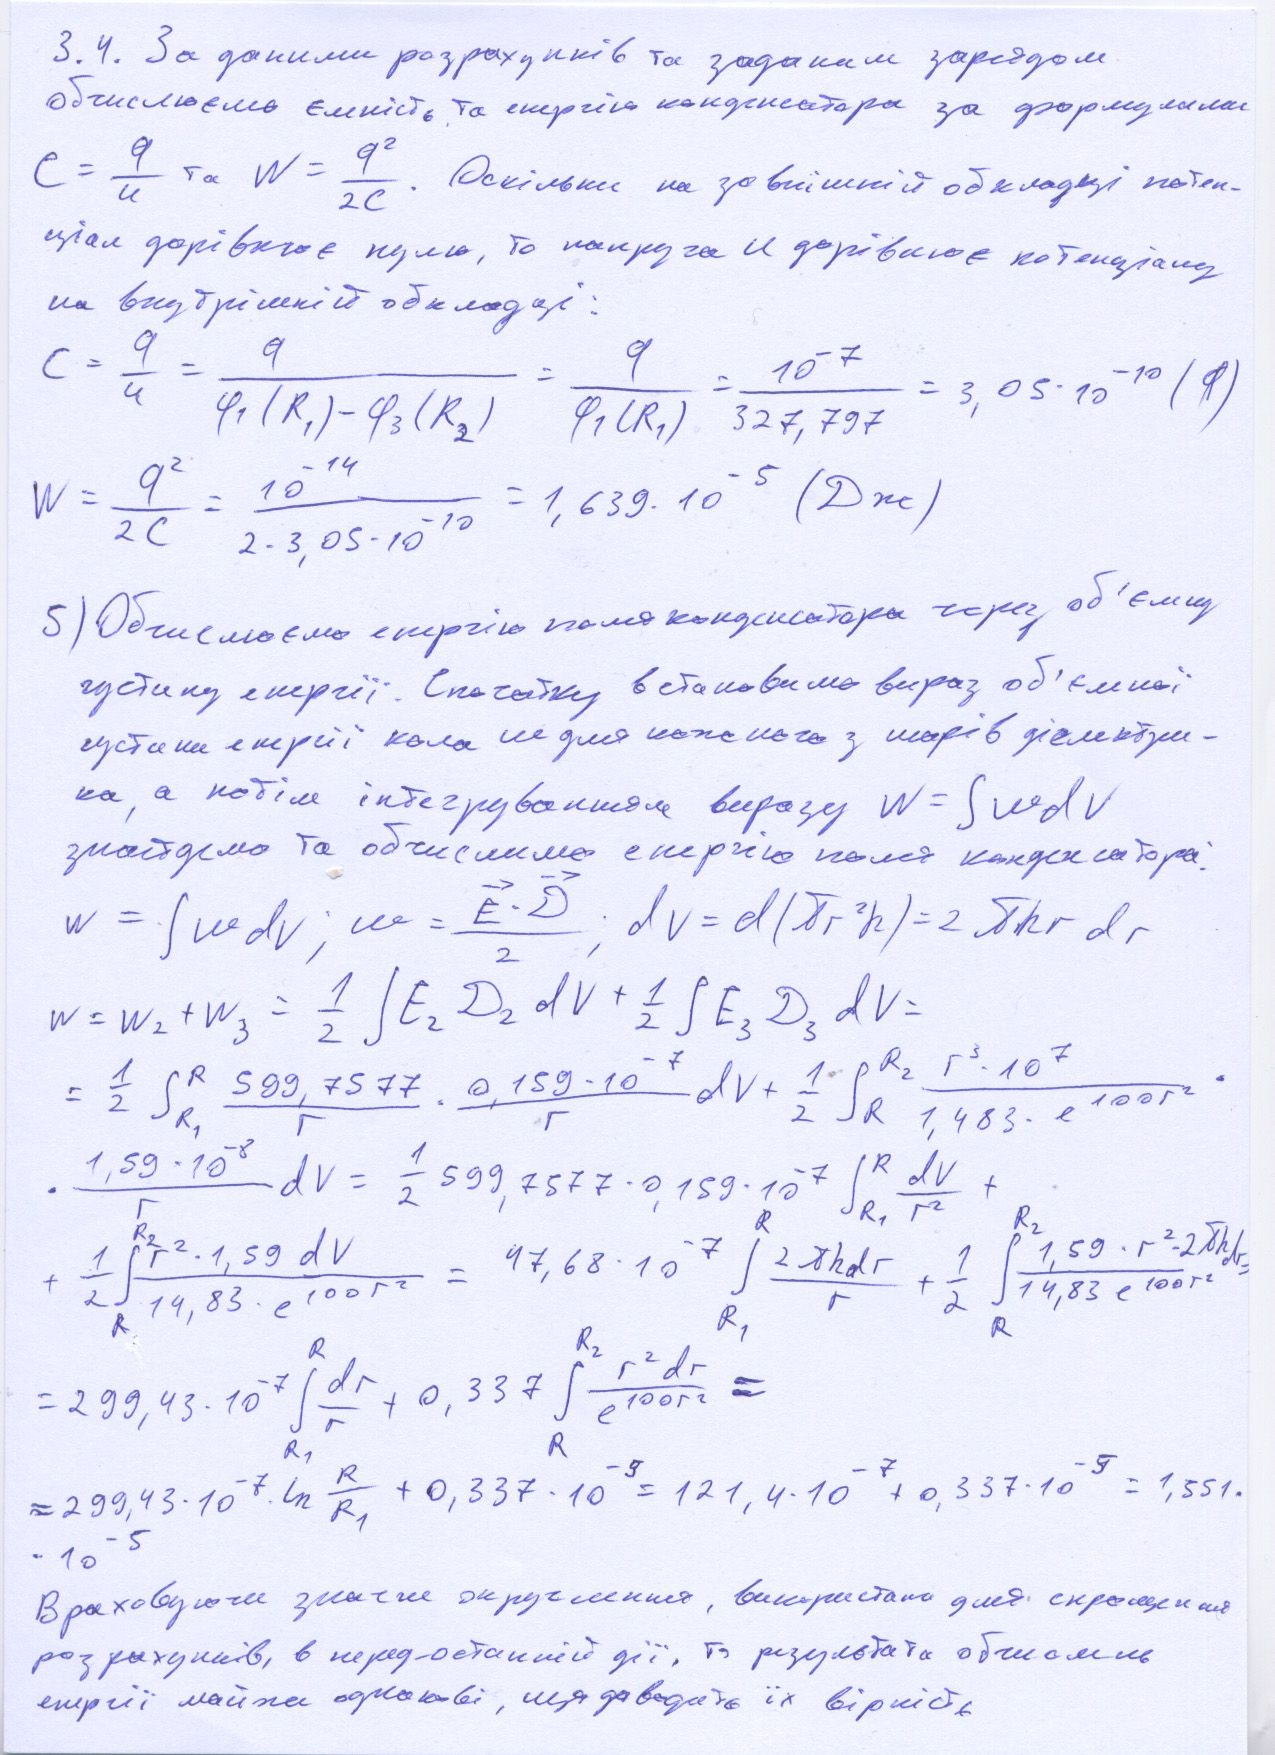 3.4. За даними розрахунків та заданим зарядом
обчислюємо ємність та енергію конденсатора за формулами
C = q/u та W = q²/2C. Оскільки на зовнішній обкладці потен-
ціал дорівнює нулю, то напруга u дорівнює потенціалу
на внутрішній обкладці:
C = q/u = q/(φ₁(R₁) - φ₃(R₂)) = q/φ₁(R₁) = 10⁻⁷/327,797 = 3,05·10⁻¹⁰ (Ф)
W = q²/2C = 10⁻¹⁴/(2·3,05·10⁻¹⁰) = 1,639·10⁻⁵ (Дж)
5) Обчислюємо енергію поля конденсатора через об'ємну
густину енергії. Спочатку встановимо вираз об'ємної
густини енергії поля w для кожного з шарів діелектри-
ка, а потім інтегруванням виразу W = ∫wdV
знайдемо та обчислимо енергію поля конденсатора:
W = ∫wdV; w = E⃗·D⃗/2; dV = d(πr²h) = 2πhr dr
W = W₂ + W₃ = 1/2 ∫E₂D₂dV + 1/2 ∫E₃D₃dV =
= 1/2 ∫_{R₁}^{R} 599,7577/r · 0,159·10⁻⁷/r dV + 1/2 ∫_{R}^{R₂} r³·10⁷/(1,483·e^{100r²}) ·
· 1,59·10⁻⁸/r dV = 1/2 599,7577·0,159·10⁻⁷ ∫_{R₁}^{R} dV/r² +
+ 1/2 ∫_{R}^{R₂} r²·1,59 dV/(14,83·e^{100r²}) = 47,68·10⁻⁷ ∫_{R₁}^{R} 2πhdr/r + 1/2 ∫_{R}^{R₂} 1,59·r²·2πhdr/(14,83 e^{100r²}) =
= 299,43·10⁻⁷ ∫_{R₁}^{R} dr/r + 0,337 ∫_{R}^{R₂} r²dr/e^{100r²} =
= 299,43·10⁻⁷·ln R/R₁ + 0,337·10⁻⁵ = 121,4·10⁻⁷ + 0,337·10⁻⁵ = 1,551·
·10⁻⁵
Враховуючи значне округлення, використане для спрощення
розрахунків, в перед-останній дії, то результати обчислень
енергії майже однакові, що доводить їх вірність